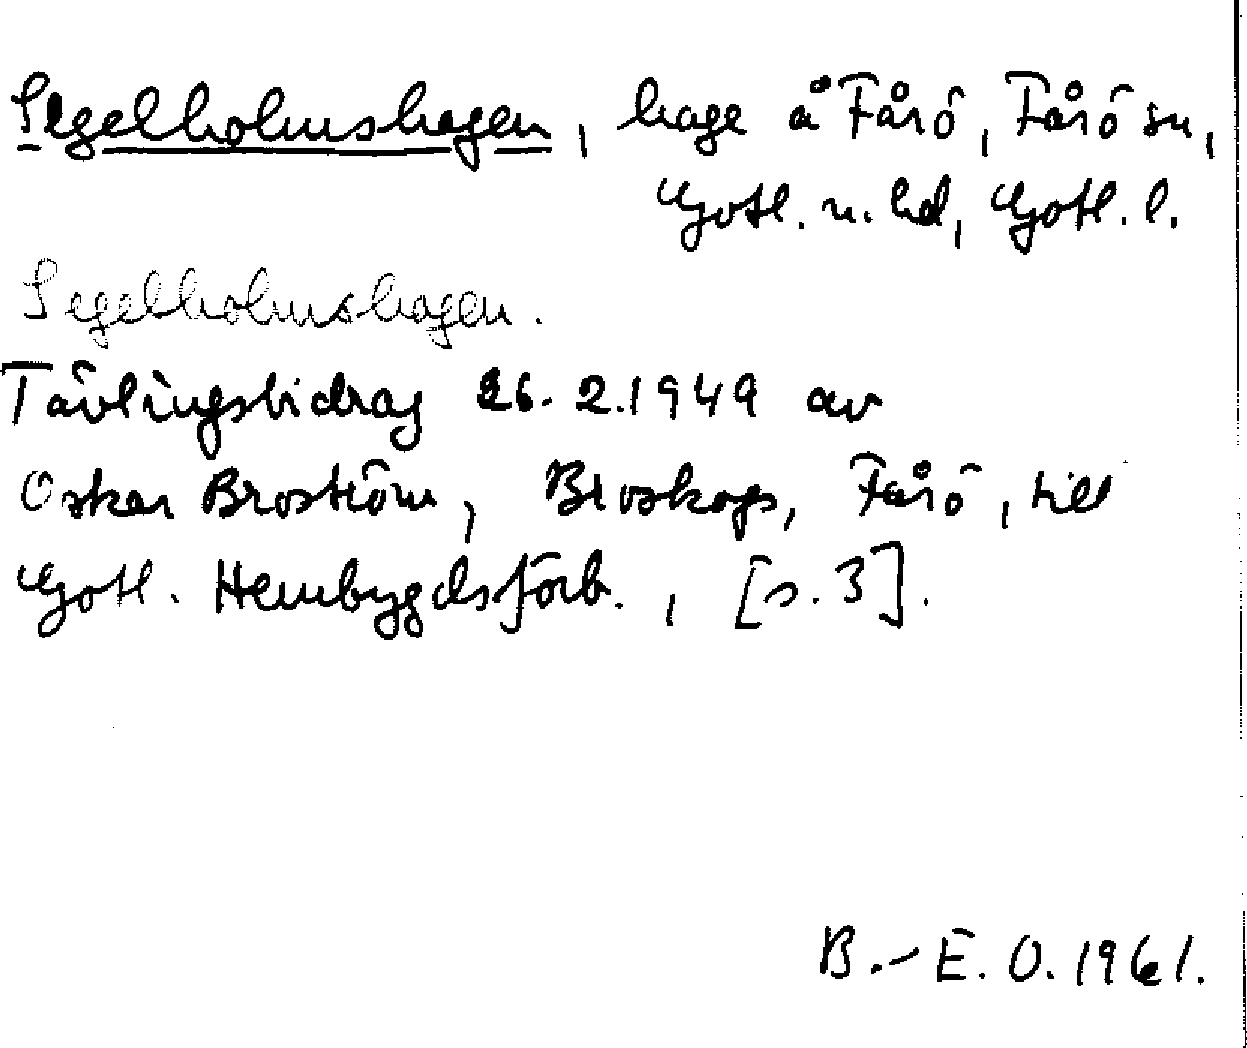 Segelholmshagen, hage å Fårö, Fårö sn,
Gotl. n. hd, Gotl. l.
Segelholmshagen.
Tävlingsbidrag 26. 2. 1949 av
Oskar Broström, Broskogs, Fårö, till
Gotl. Hembygdsförb., [s. 3].
B.-E. O. 1961.